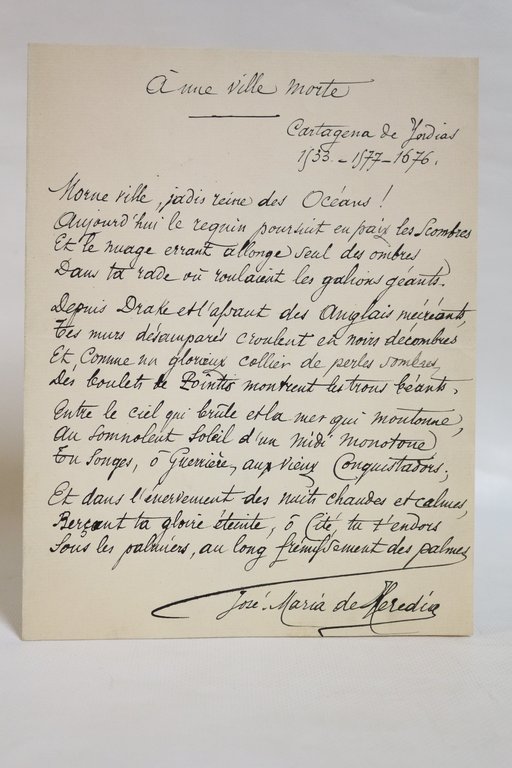 À une ville morte
Cartagena de Yndias
1533 - 1577 - 1676.
Morne ville, jadis reine des Océans !
Aujourd'hui le requin poursuit en paix les Scombres
Et le nuage errant allonge seul des ombres
Dans ta rade où roulaient les galions géants.
Depuis Drake et l'assaut des Anglais mécréants,
Tes murs désemparés croulent en noirs décombres
Et, comme un glorieux collier de perles sombres,
Des boulets de Pointis montrent les trous béants.
Entre le ciel qui brûle et la mer qui moutonne,
Au somnolent Soleil d'un Midi monotone,
Tu Songes, ô Guerrière, aux vieux Conquistadors ;
Et dans l'énervement des nuits chaudes et calmes,
Berçant ta gloire éteinte, ô Cité, tu t'endors
Sous les palmiers, au long frémissement des palmes
José-Maria de Heredia